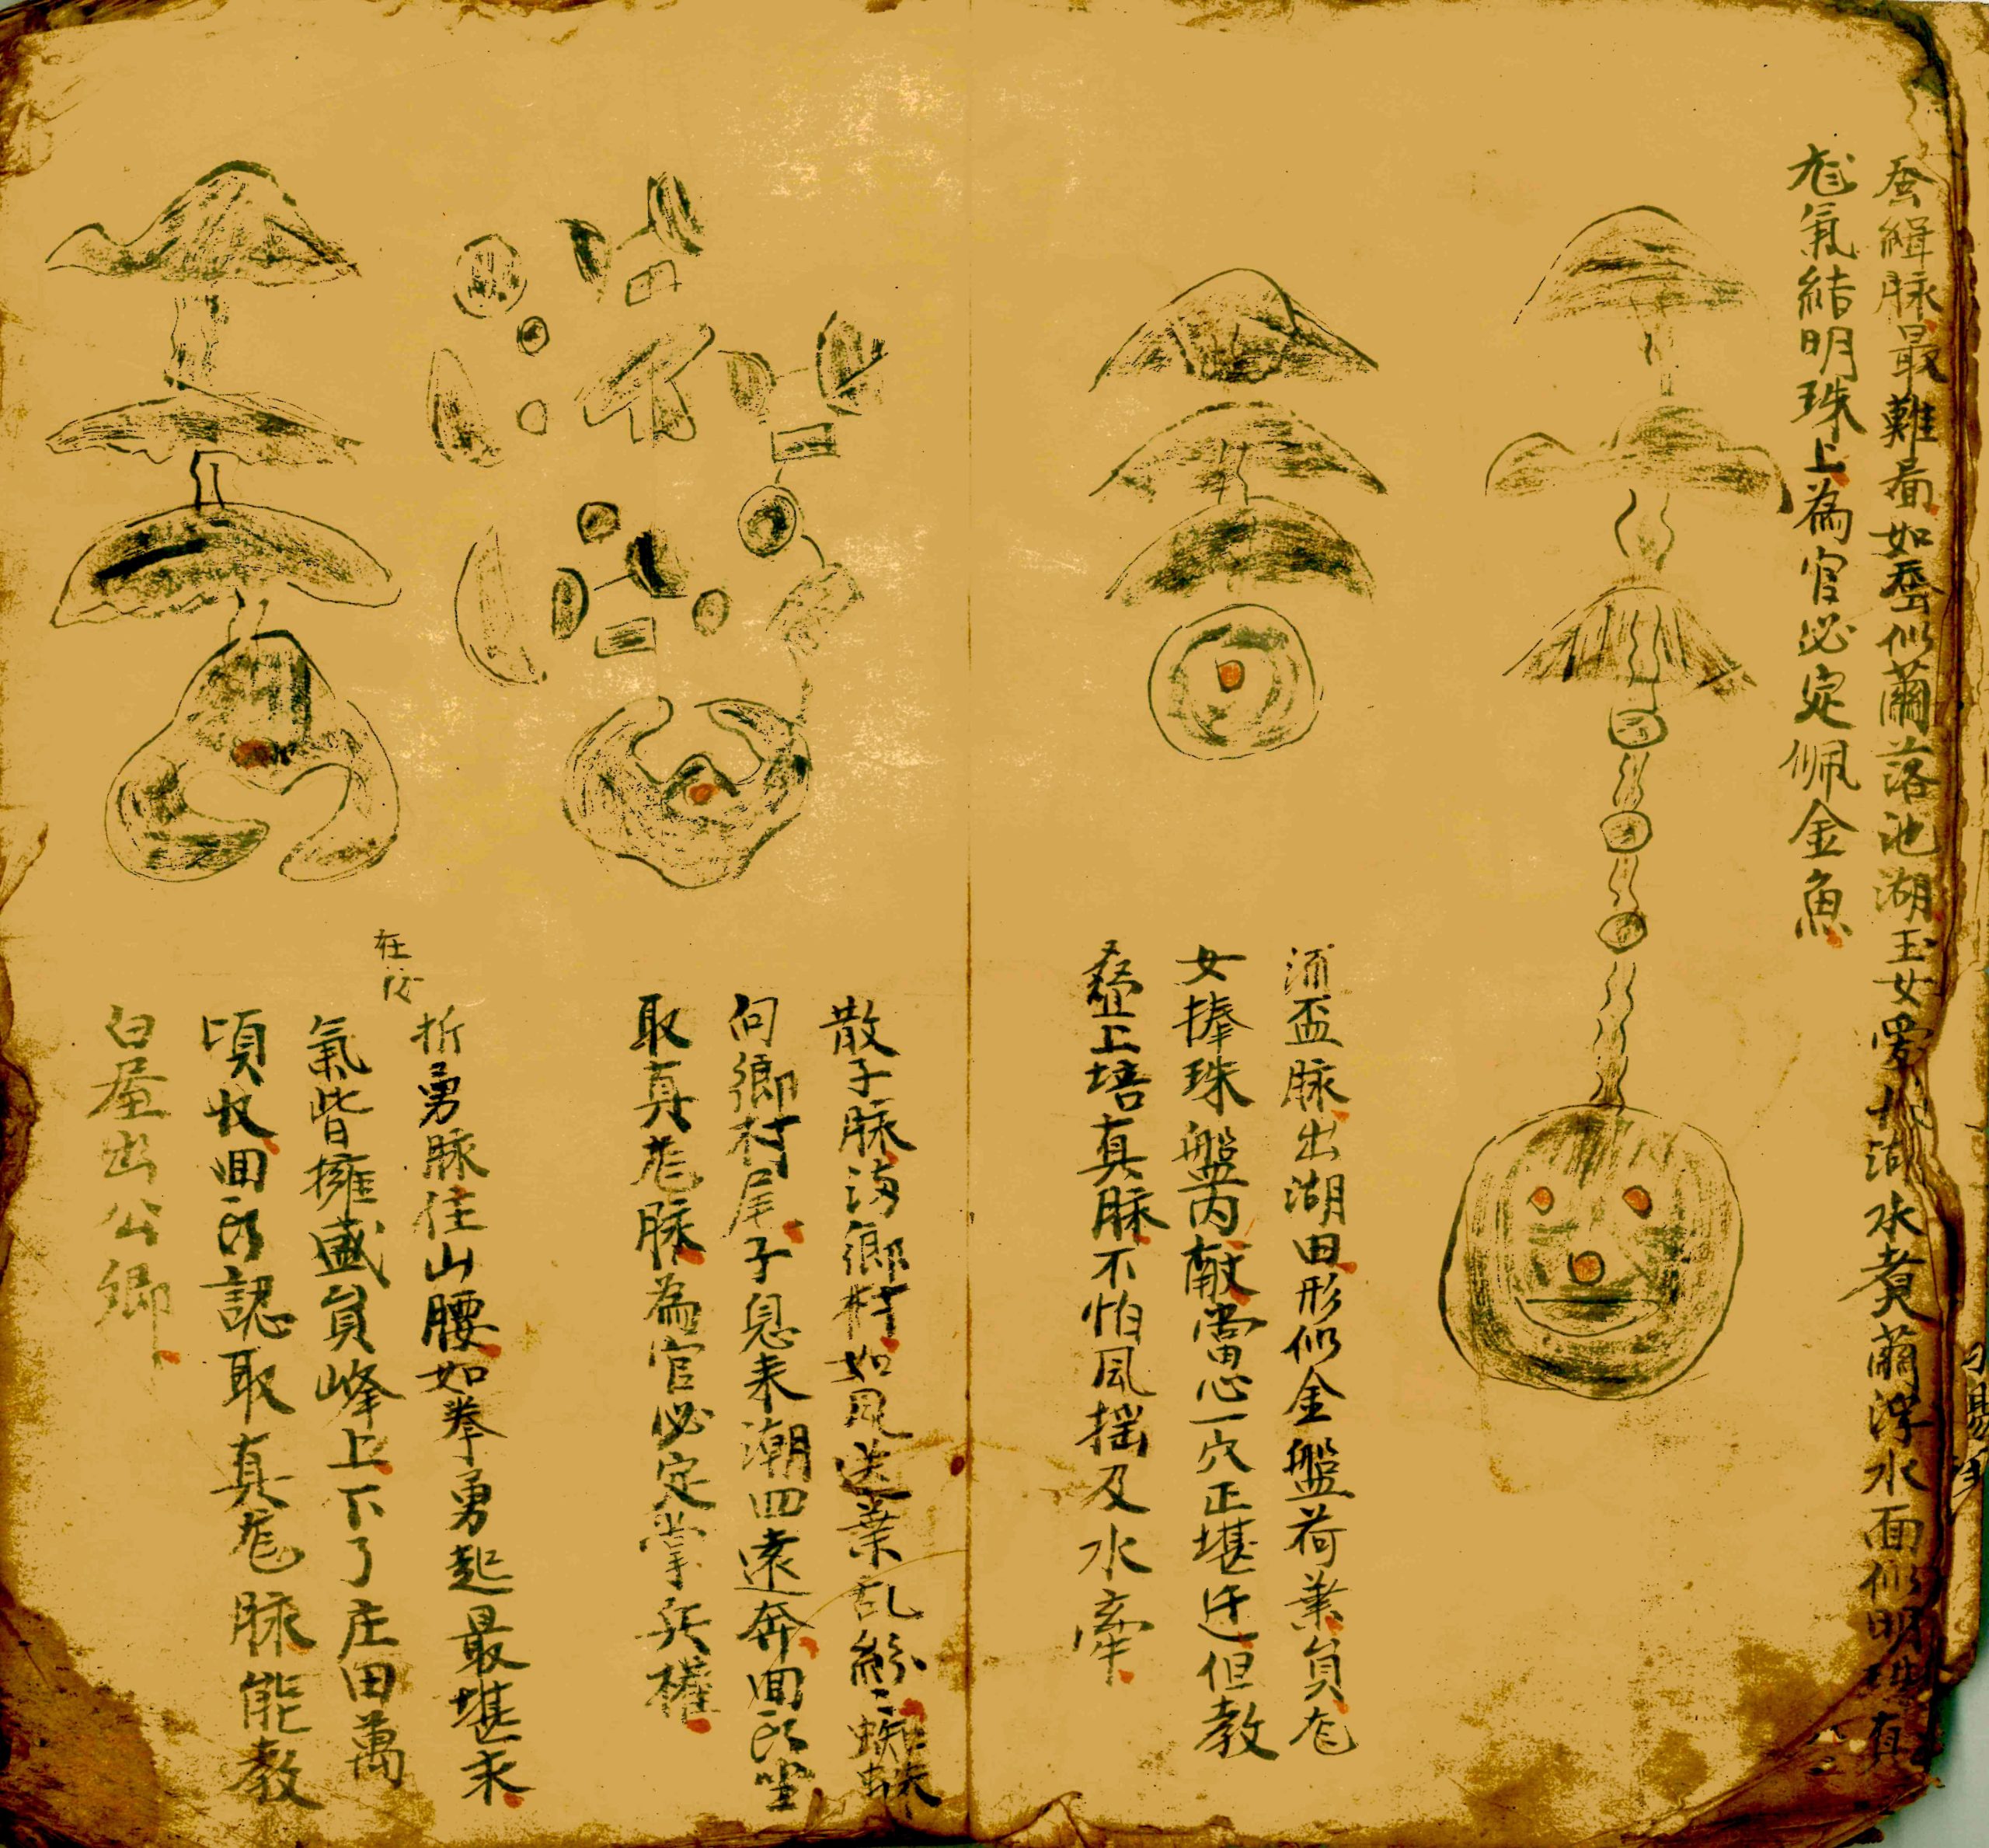 蚕緝脉最難看如蚕似繭落池湖玉女愛 湖水煮繭浮水面似明珠真
尨氣結明珠上為官必定佩金魚
須盃脉出湖田形似金盤荷葉負尨
女捧珠盤内献當心一穴正堪迁但教
叠上培真脉不怕風摇及水牽
散子脉海鄉村如風送葉乱紛〻蜘蛛
向鄉村尾子息来潮四遠奔回氏坐
取真尨脉為官必定掌兵權
在後
折勇脉住山腰如拳勇起最堪求
氣皆擁盛負峰上下了庄田萬
頃收回氏認取真尨脉能教
白屋出公卿